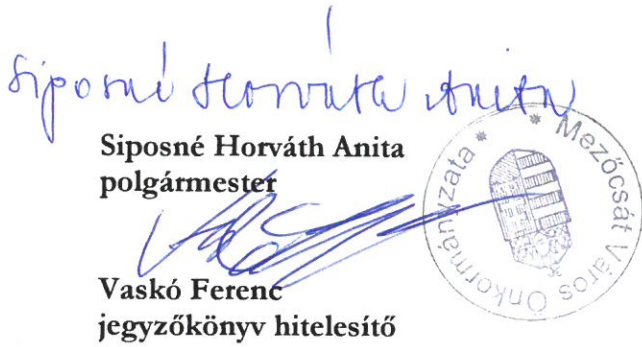 Siposné Horváth Anita
Siposné Horváth Anita
polgármester
Vaskó Ferenc
jegyzőkönyv hitelesítő
* Mezőcsát Város Önkormányzata *